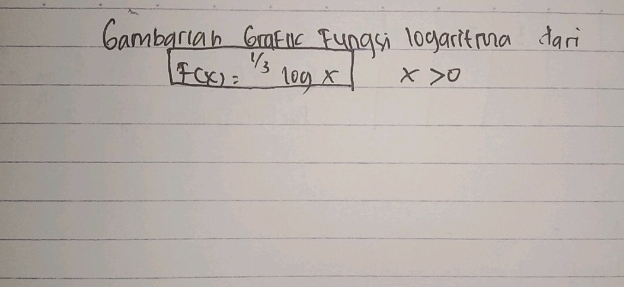 Gambarlah Grafik Fungsi logaritma dari
F(x) = 1/3 log x x > 0